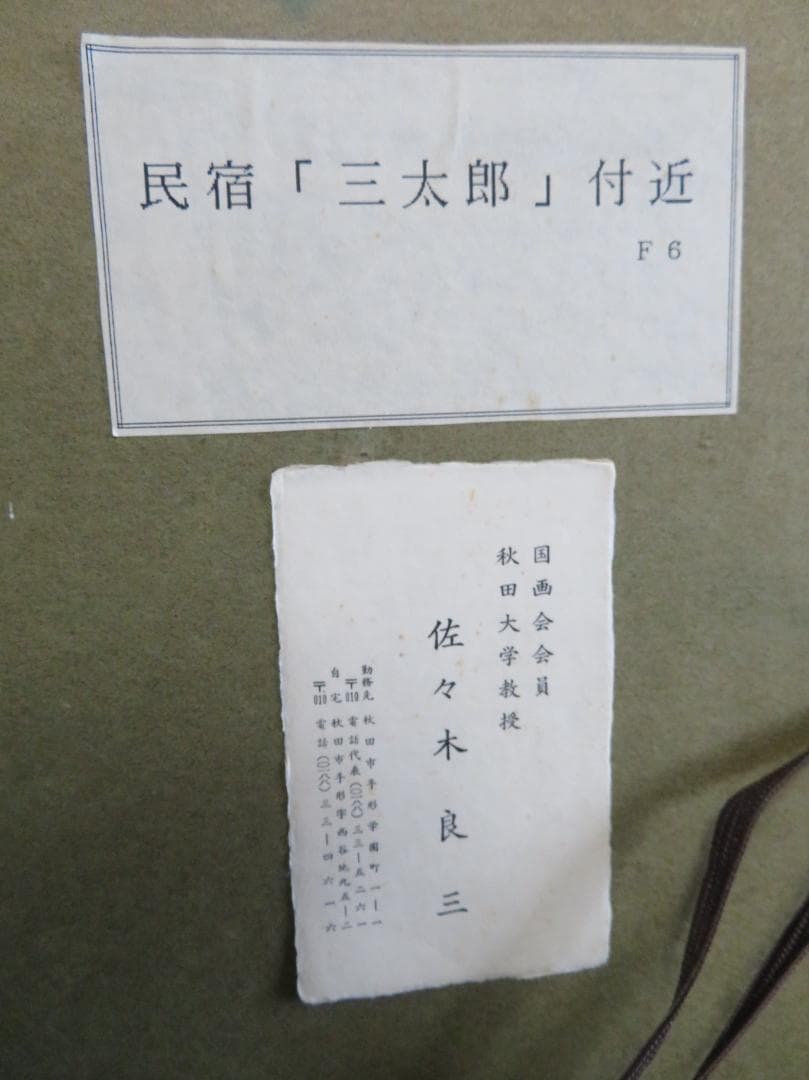 民宿「三太郎」付近
F6
国画会会員
秋田大学教授
佐々木良三
勤務先 秋田市手形学園町一―一
〒010 電話代表(〇一八八)三三―五二六一
自宅 秋田市手形字西谷地九五―二
〒010 電話(〇一八八)三三―四六一六